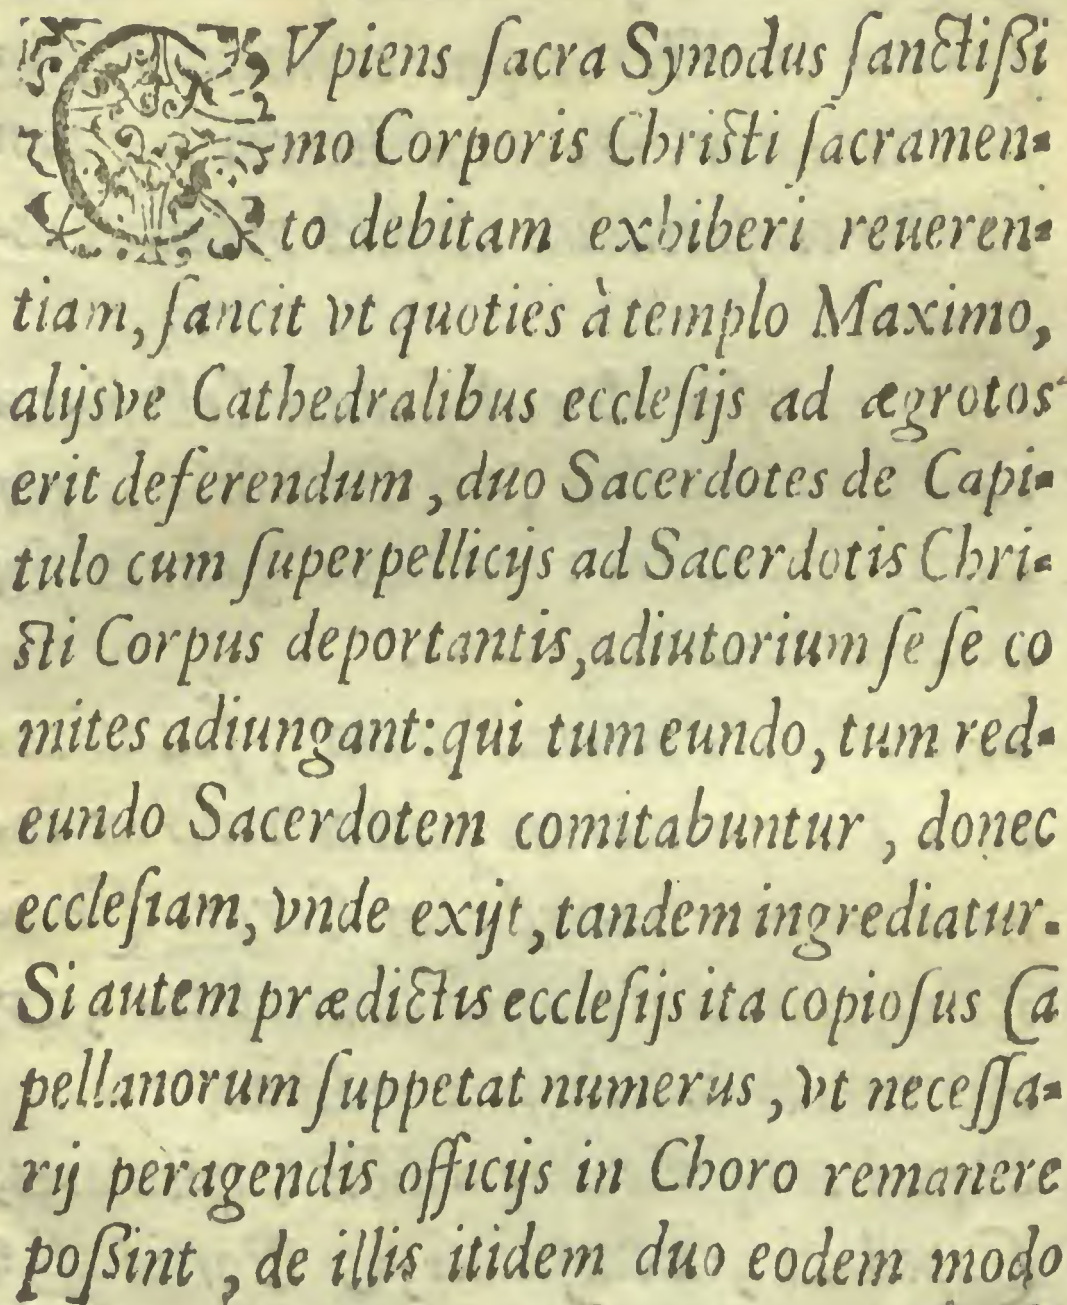 CVpiens ſacra Synodus ſanctiſsi
mo Corporis Chriſti ſacramen-
to debitam exhiberi reueren-
tiam, ſancit vt quoties à templo Maximo,
alijsve Cathedralibus eccleſijs ad ægrotos
erit deferendum, duo Sacerdotes de Capi-
tulo cum ſuperpellicijs ad Sacerdotis Chri-
ſti Corpus deportantis, adiutorium ſe ſe co
mites adiungant: qui tum eundo, tum red-
eundo Sacerdotem comitabuntur, donec
eccleſiam, vnde exijt, tandem ingrediatur.
Si autem prædictis eccleſijs ita copioſus Ca
pellanorum ſuppetat numerus, vt neceſſa-
rij peragendis officijs in Choro remanere
poſsint, de illis itidem duo eodem modo